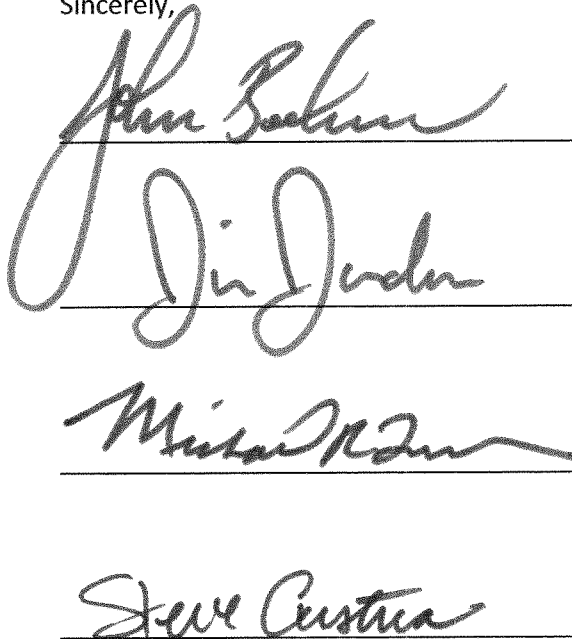 Sincerely,
John Boehner
Jim Jordan
Michael R
Steve Austria